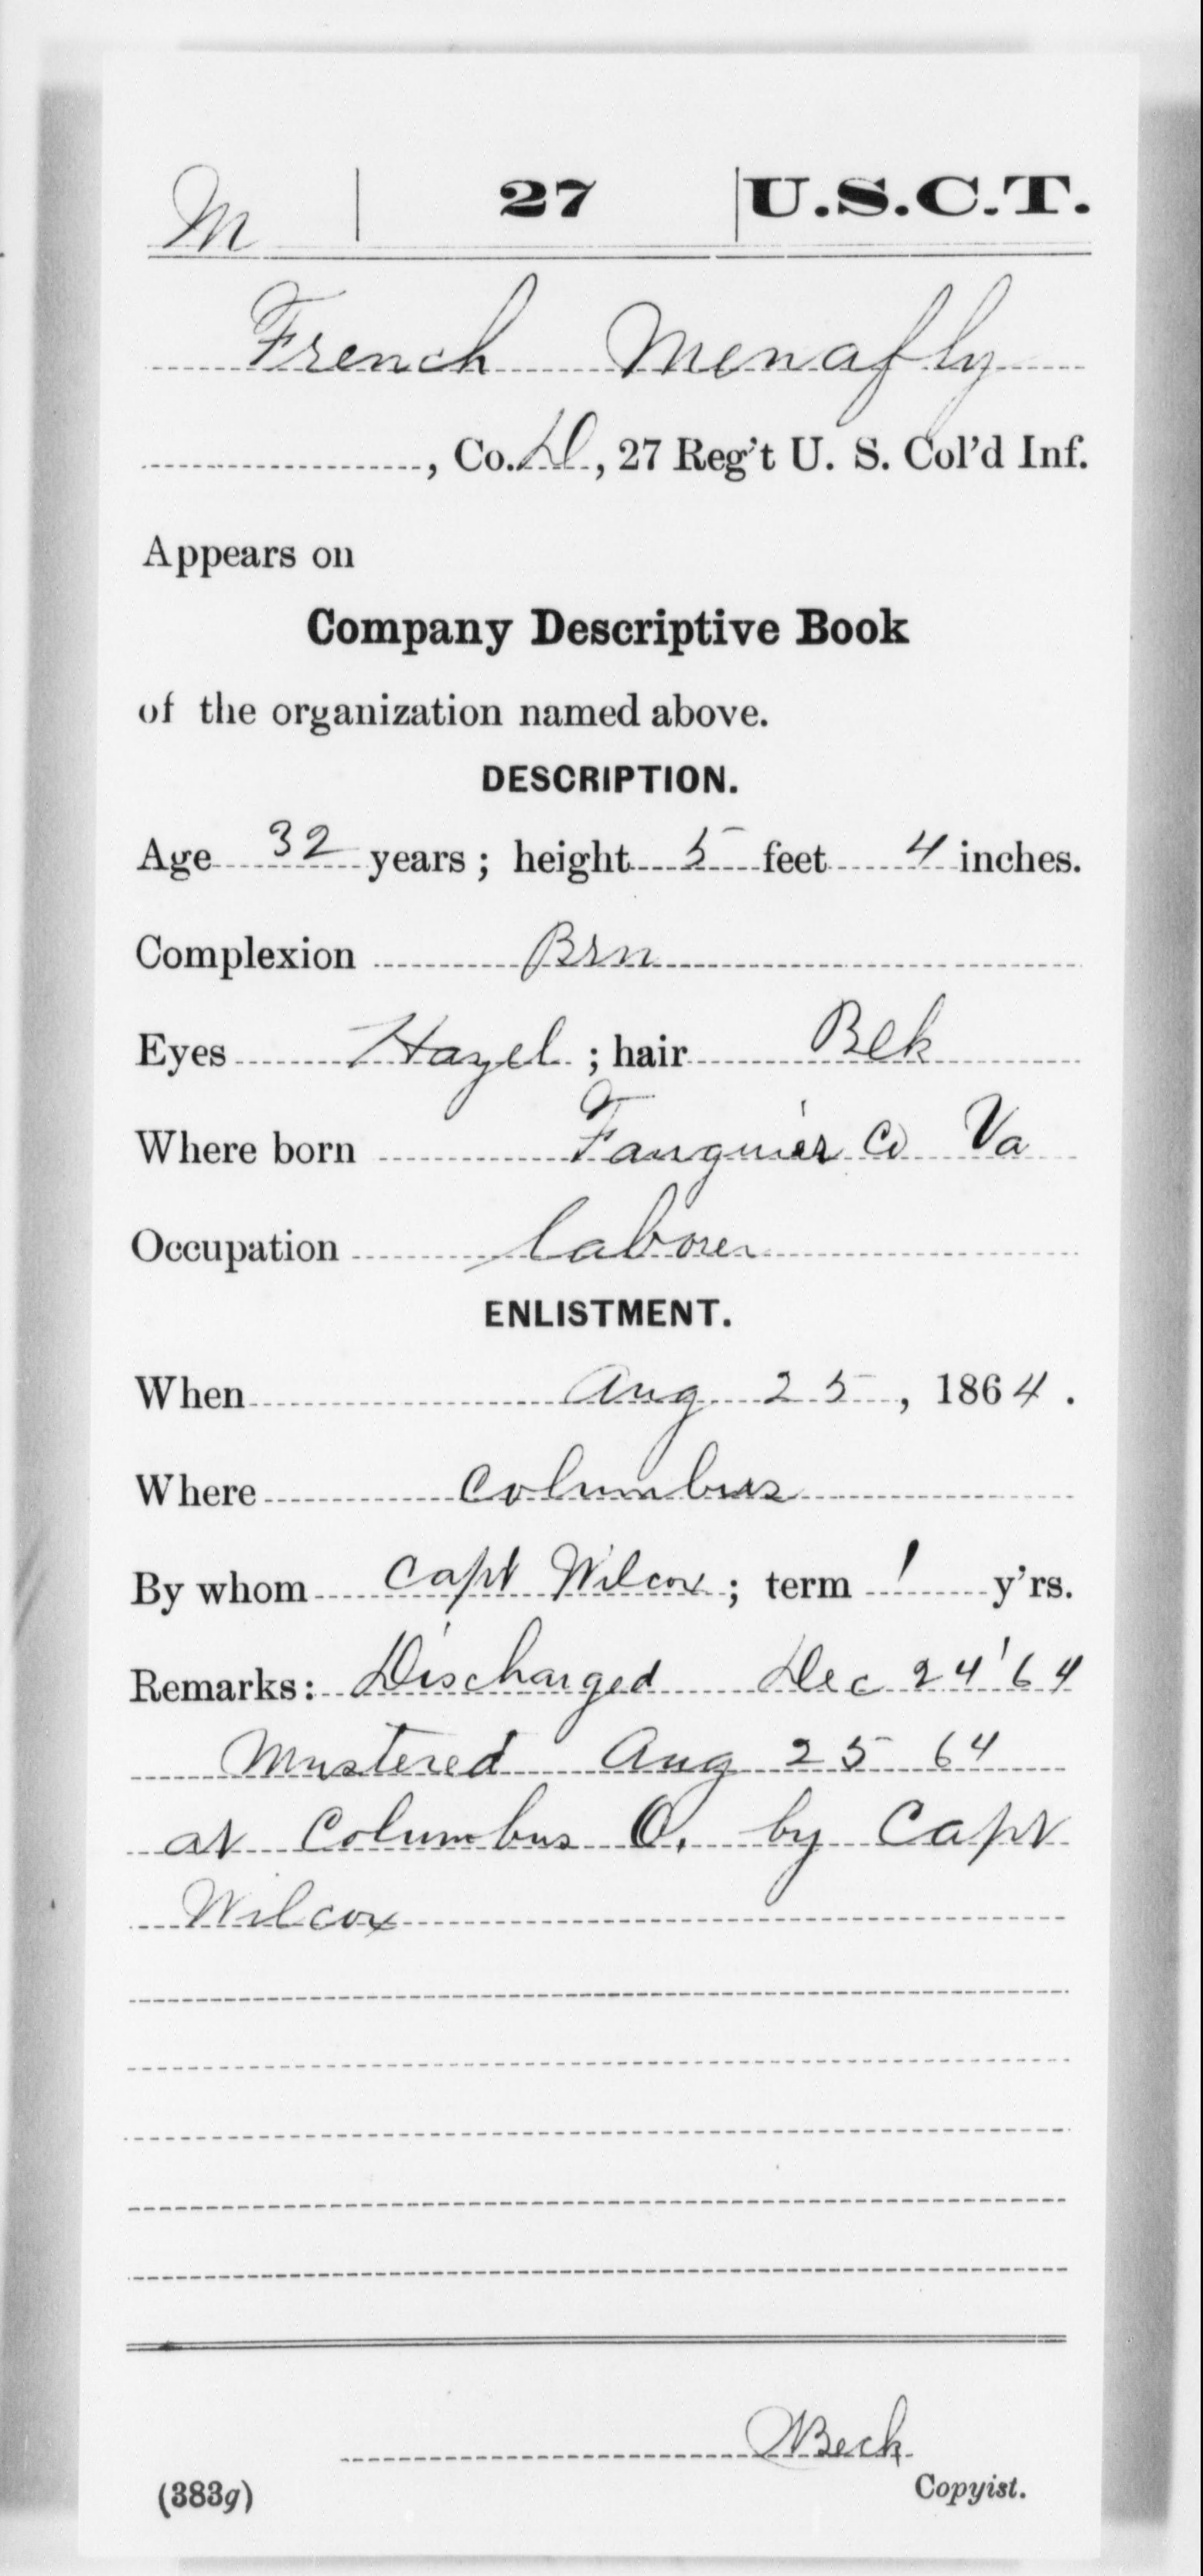 M | 27 | U.S.C.T.
French Menafly
, Co. D, 27 Reg't U. S. Col'd Inf.
Appears on
Company Descriptive Book
of the organization named above.
DESCRIPTION.
Age 32 years; height 5 feet 4 inches.
Complexion Brn
Eyes Hazel; hair Blk
Where born Fauquier Co Va
Occupation laborer
ENLISTMENT.
When Aug 25, 1864.
Where Columbus
By whom Capt Wilcox; term 1 y'rs.
Remarks: Discharged Dec 24 '64
Mustered Aug 25 64
at Columbus O. by Capt
Wilcox
Beck
(383g) Copyist.